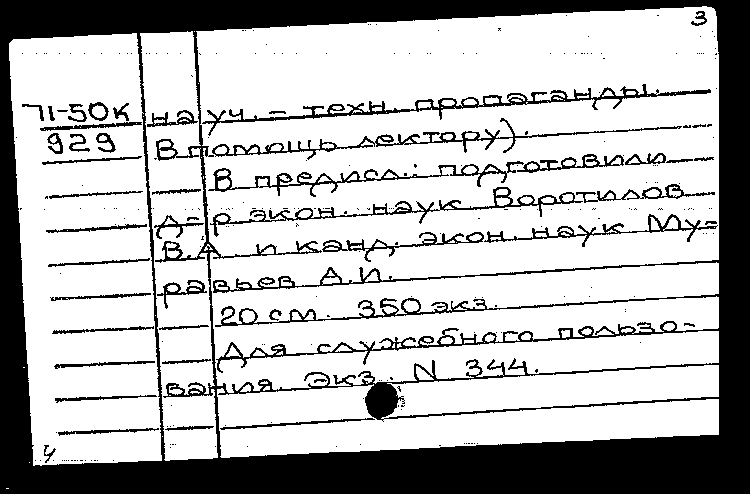 3
71-50к науч.=техн. пропаганды.
929 В помощь лектору).
В предисл.: подготовили
д-р экон. наук Воротилов
В.А и канд. экон. наук Му=
равьев А.И.
20 см. 350 экз.
Для служебного пользо-
вания. Экз. N 344.